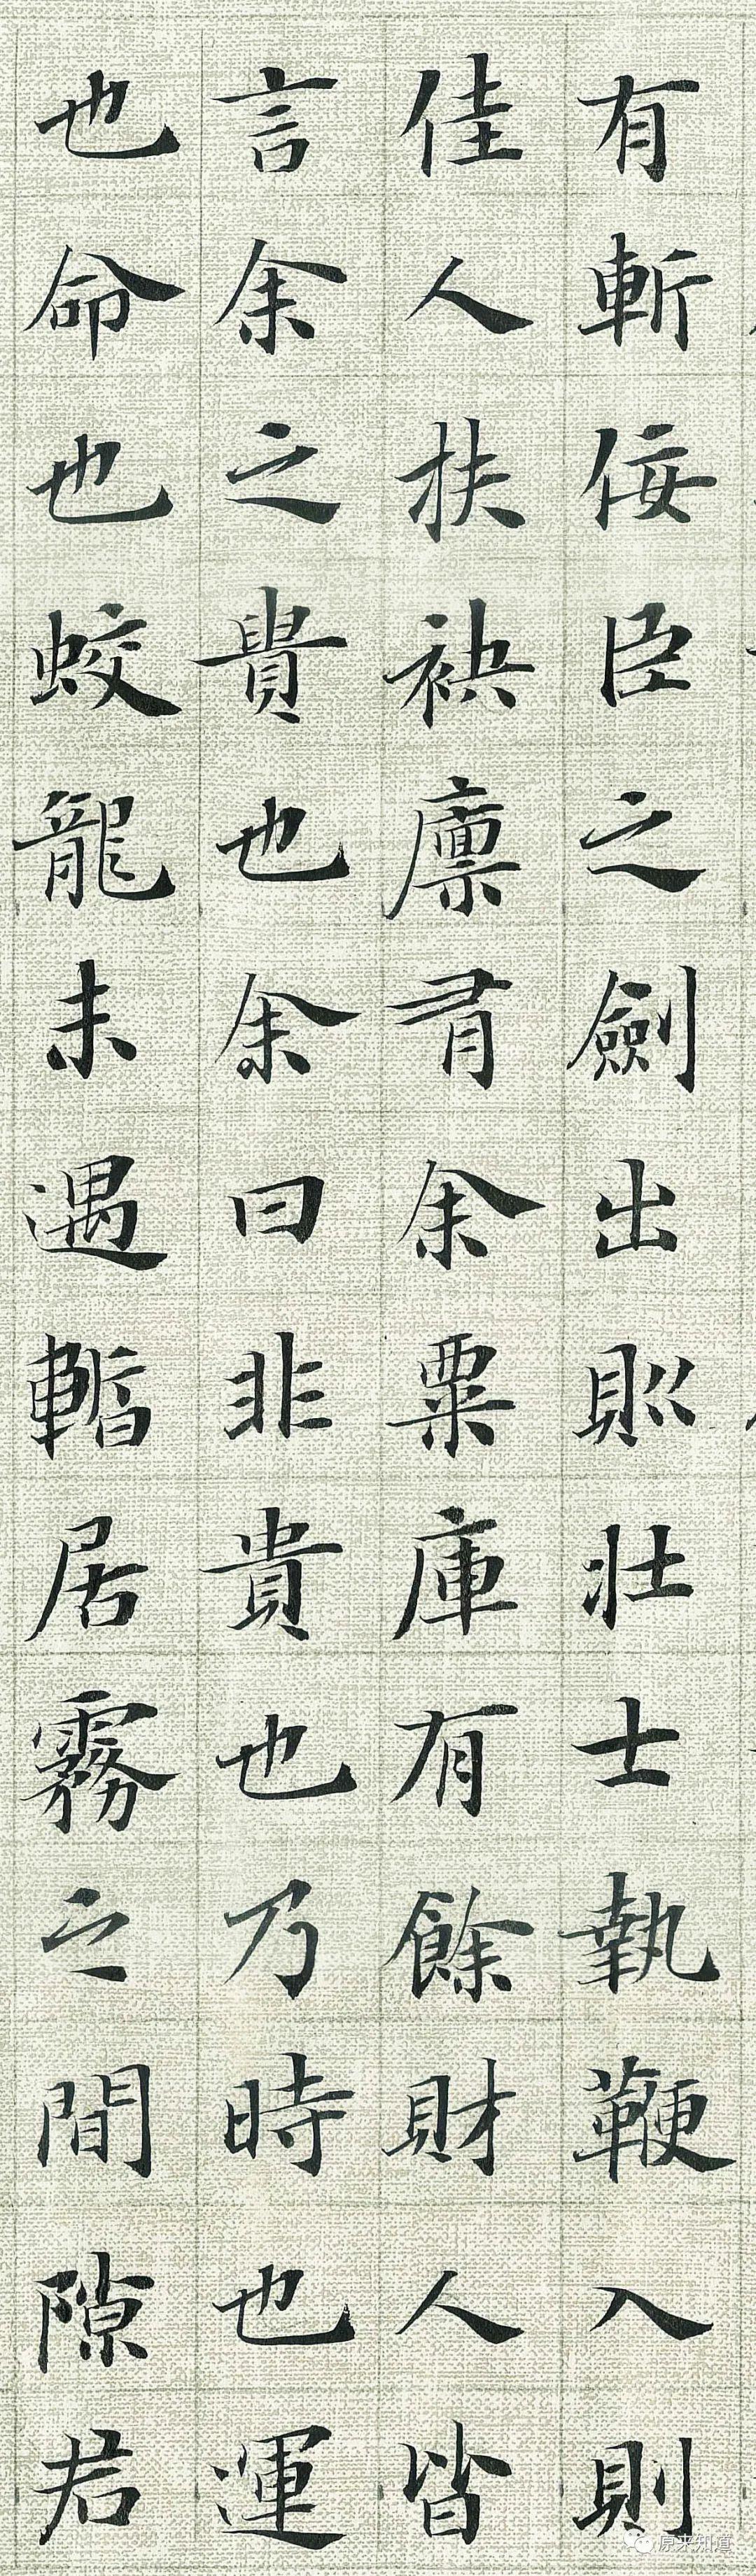 有斬佞臣之劍出則壯士執鞭入則
佳人扶袂廩有余粟庫有餘財人皆
言余之貴也余曰非貴也乃時也運
也命也蛟龍未遇暫居霧之間隙君
原来知道